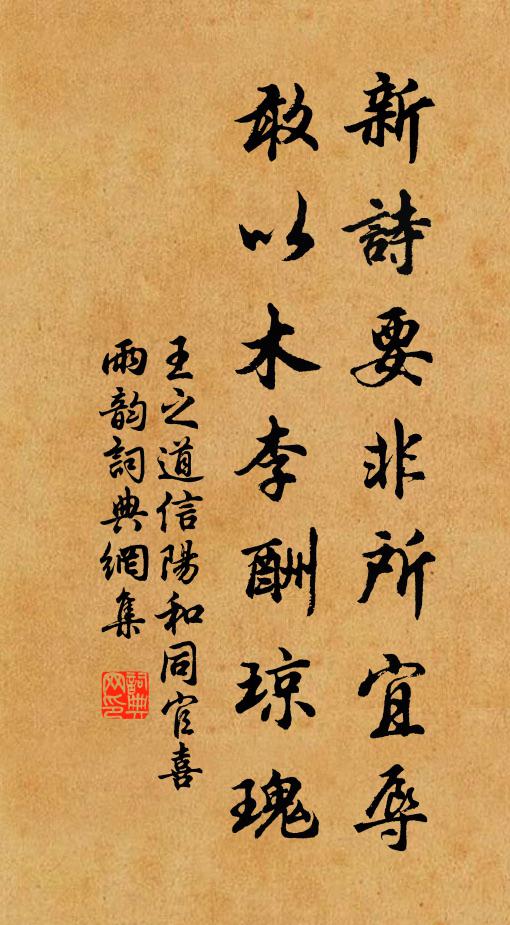 新詩要非所宜辱
敢以木李酬琼瑰
王之道信陽和同官喜
雨韵詞典網集
詞典网印